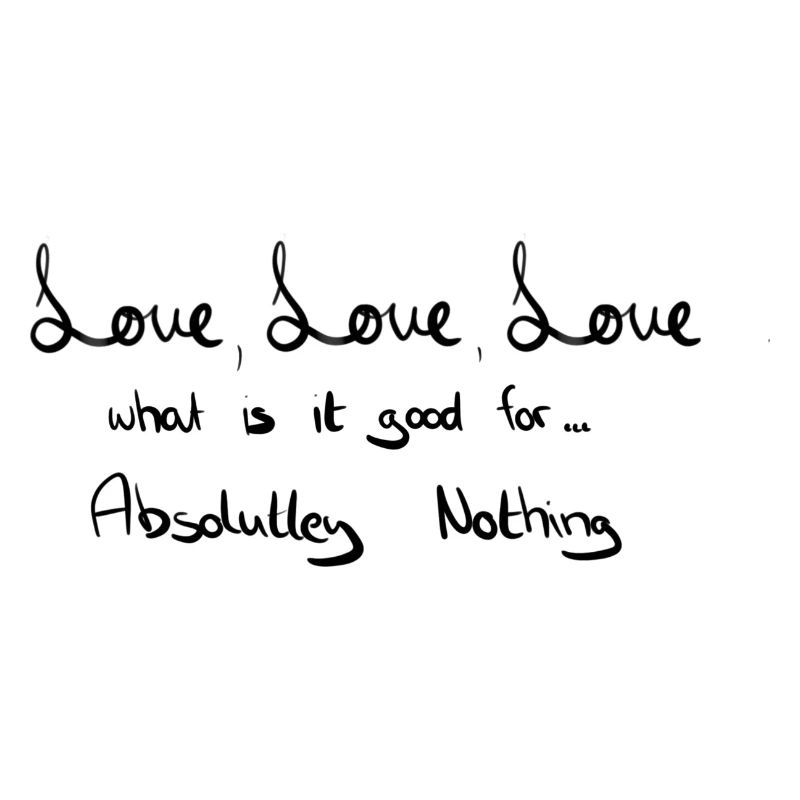 Love, Love, Love
what is it good for...
Absolutley Nothing